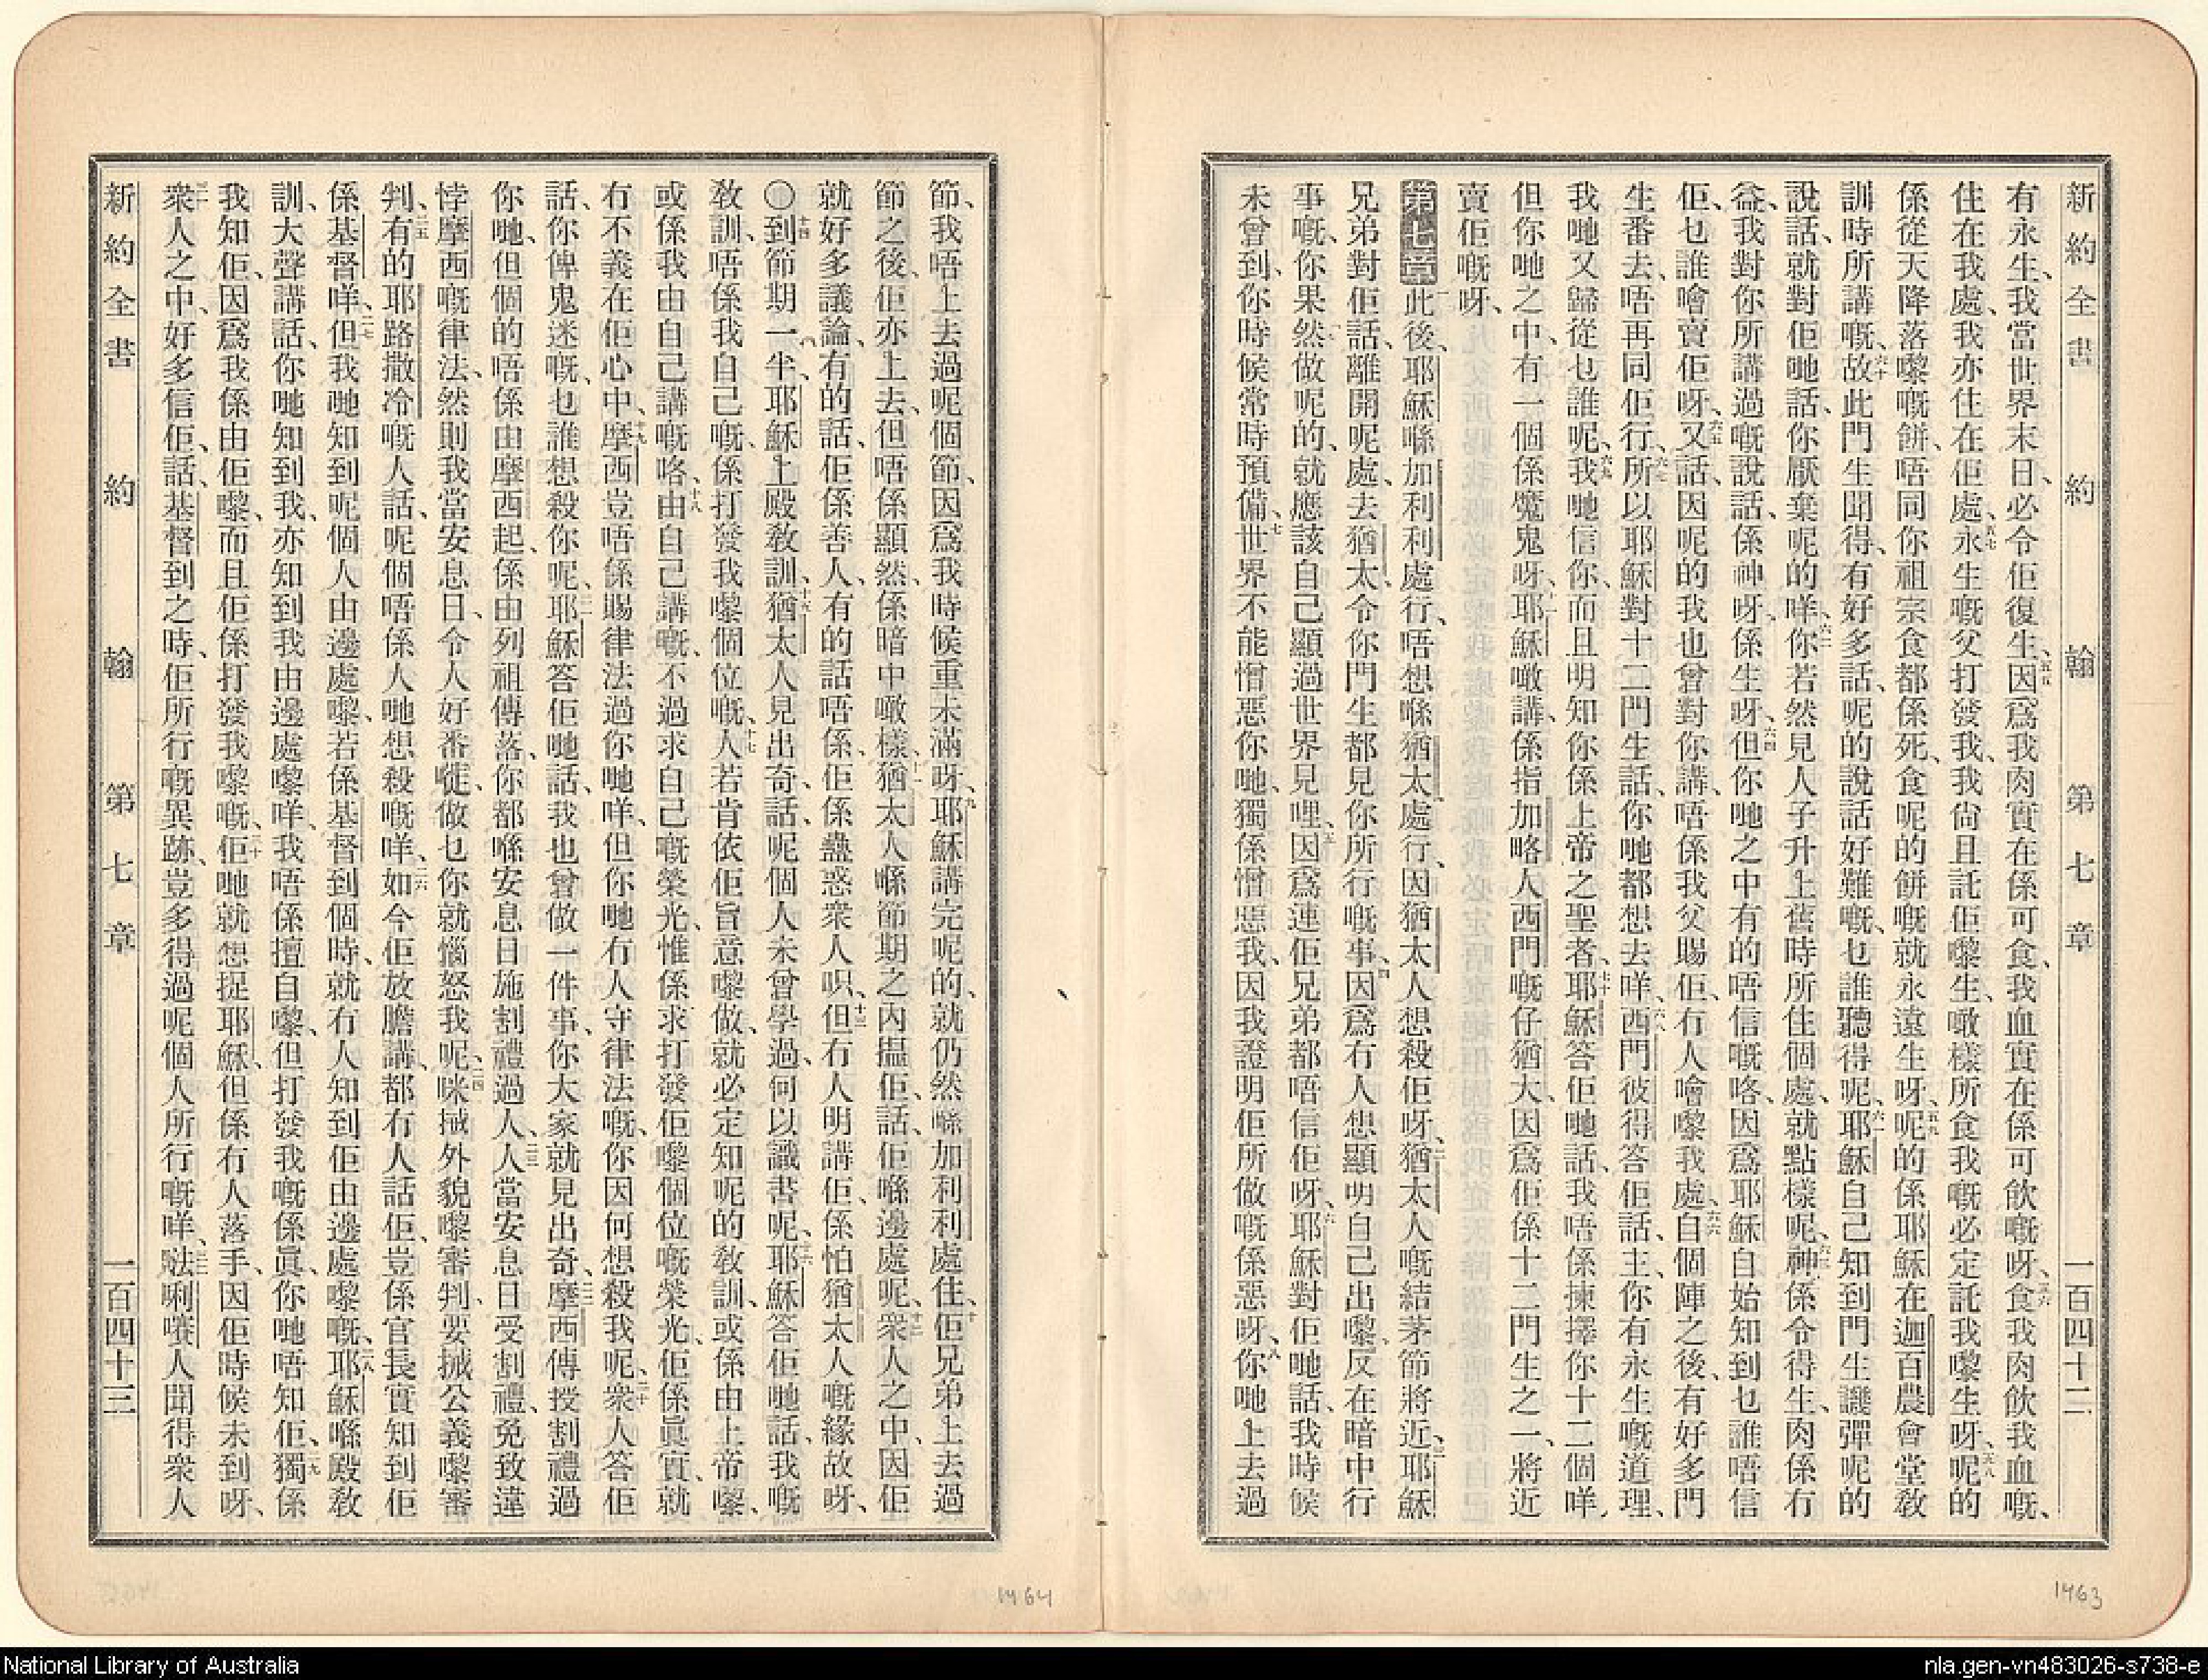 新約全書　約　翰　第七章　一百四十二
有永生、我當世界末日、必令佢復生、五五因爲我肉實在係可食、我血實在係可飲嘅呀、五六食我肉飲我血嘅、
住在我處、我亦住在佢處、五七永生嘅父打發我、我尙且託佢嚟生、噉樣所食我嘅必定託我嚟生呀、五八呢的
係從天降落嚟嘅餅、唔同你祖宗食都係死、食呢的餅嘅就永遠生呀、五九呢的係耶穌在迦百農會堂敎
訓時所講嘅、六十故此門生聞得、有好多話、呢的說話好難嘅、乜誰聽得呢、六一耶穌自己知到門生譏彈呢的
說話、就對佢哋話、你厭棄呢的咩、六二你若然見人子升上舊時所住個處、就點樣呢、六三神係令得生、肉係冇
益、我對你所講過嘅說話、係神呀、係生呀、六四但你哋之中有的唔信嘅咯、因爲耶穌自始知到乜誰唔信
佢、乜誰噲賣佢呀、六五又話、因呢的我也曾對你講、唔係我父賜佢、冇人噲嚟我處、六六自個陣之後、有好多門
生番去、唔再同佢行、六七所以耶穌對十二門生話、你哋都想去咩、六八西門彼得答佢話、主、你有永生嘅道理、
我哋又歸從乜誰呢、六九我哋信你、而且明知你係上帝之聖者、七十耶穌答佢哋話、我唔係揀擇你十二個咩、
但你哋之中、有一個係魔鬼呀、七一耶穌噉講、係指加略人西門嘅仔猶大、因爲佢係十二門生之一、將近
賣佢嘅呀、
第七章　一此後、耶穌喺加利利處行、唔想喺猶太處行、因猶太人想殺佢呀、二猶太人嘅結茅節將近、三耶穌
兄弟對佢話、離開呢處、去猶太、令你門生都見你所行嘅事、四因爲冇人想顯明自己出嚟、反在暗中行
事嘅、你果然做呢的、就應該自己顯過世界見哩、五因爲連佢兄弟都唔信佢呀、六耶穌對佢哋話、我時候
未曾到、你時候常時預備、七世界不能憎惡你哋、獨係憎惡我、因我證明佢所做嘅係惡呀、八你哋上去過
節、我唔上去過呢個節、因爲我時候重未滿呀、九耶穌講完呢的、就仍然喺加利利處住、十佢兄弟上去過
節之後、佢亦上去、但唔係顯然、係暗中噉樣、十一猶太人喺節期之內搵佢、話、佢喺邊處呢、十二衆人之中、因佢
就好多議論、有的話、佢係善人、有的話唔係、佢係蠱惑衆人呮、十三但冇人明講佢、係怕猶太人嘅緣故呀、
〇十四到節期一半、耶穌上殿敎訓、十五猶太人見出奇、話、呢個人未曾學過、何以識書呢、十六耶穌答佢哋話、我嘅
敎訓、唔係我自己嘅、係打發我嚟個位嘅、十七人若肯依佢旨意嚟做、就必定知呢的敎訓、或係由上帝嚟、
或係我由自己講嘅咯、十八由自己講嘅、不過求自己嘅榮光、惟係求打發佢嚟個位嘅榮光、佢係眞實、就
冇不義在佢心中、十九摩西豈唔係賜律法過你哋咩、但你哋冇人守律法嘅、你因何想殺我呢、二十衆人答佢
話、你俾鬼迷嘅、乜誰想殺你呢、二一耶穌答佢哋話、我也曾做一件事、你大家就見出奇、二二摩西傳授割禮過
你哋、但個的唔係由摩西起、係由列祖傳落、你都喺安息日施割禮過人、二三人當安息日受割禮、免致違
悖摩西嘅律法、然則我當安息日、令人好番嘥、做乜你就惱怒我呢、二四咪㨢外貌嚟審判、要㨢公義嚟審
判、二五有的耶路撒冷嘅人話、呢個唔係人哋想殺嘅咩、二六如今佢放膽講、都冇人話佢、豈係官長實知到佢
係基督咩、二七但我哋知到呢個人由邊處嚟、若係基督到個時、就冇人知到佢由邊處嚟嘅、二八耶穌喺殿敎
訓、大聲講話、你哋知到我、亦知到我由邊處嚟咩、我唔係擅自嚟、但打發我嘅係眞、你哋唔知佢、二九獨係
我知佢、因爲我係由佢嚟、而且佢係打發我嚟嘅、三十佢哋就想捉耶穌、但係冇人落手、因佢時候未到呀、
三一衆人之中、好多信佢、話、基督到之時、佢所行嘅異跡、豈多得過呢個人所行嘅咩、三二𡃓唎㘔人聞得衆人
新約全書　約　翰　第七章　一百四十三
1464
1463
National Library of Australia
nla.gen-vn483026-s738-e